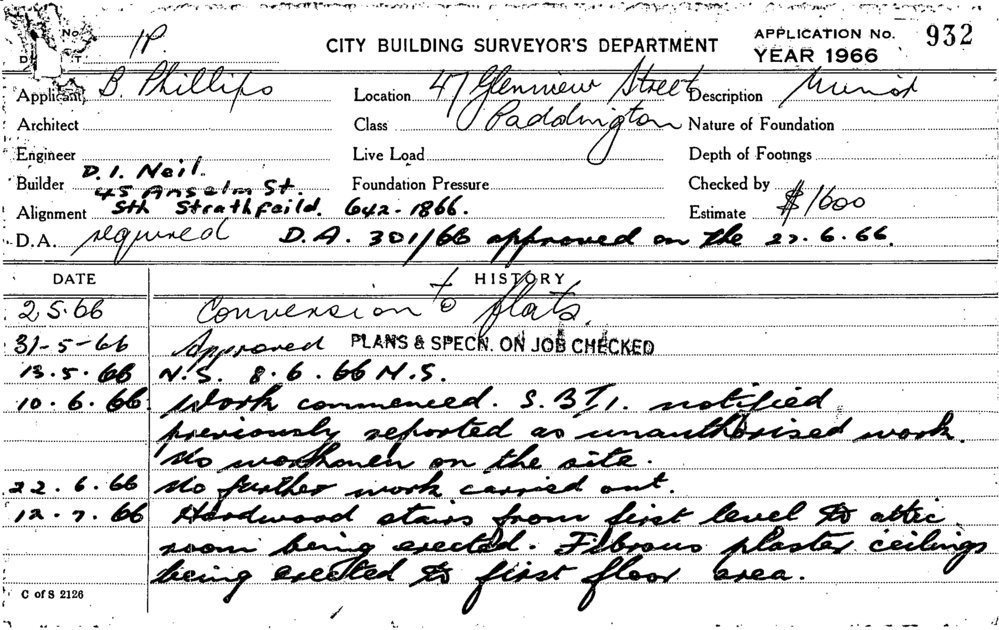 No. 1P.
CITY BUILDING SURVEYOR'S DEPARTMENT
APPLICATION No. 932
YEAR 1966
Applicant B. Phillips
Location 47 Glenview Street
Paddington
Description Minor
Architect
Class
Nature of Foundation
Engineer
Live Load
Depth of Footings
Builder D. I. Neil.
45 Anselm St.
Foundation Pressure
Checked by
Alignment Sth Strathfeild. 642-1866.
Estimate $1600
D.A. required D.A. 301/66 approved on the 27.6.66.
DATE HISTORY
2 5.66 Conversion to flats.
31-5-66 Approved PLANS & SPECN. ON JOB CHECKED
13.5.66 N.S. 8.6.66 N.S.
10.6.66 Work commenced. S.B.I. notified
previously reported as unauthorised work.
No workmen on the site.
22.6.66 No further work carried out.
12.7.66 Hardwood stairs from first level to attic
room being erected. Fibrous plaster ceilings
being erected to first floor area.
C of S 2126